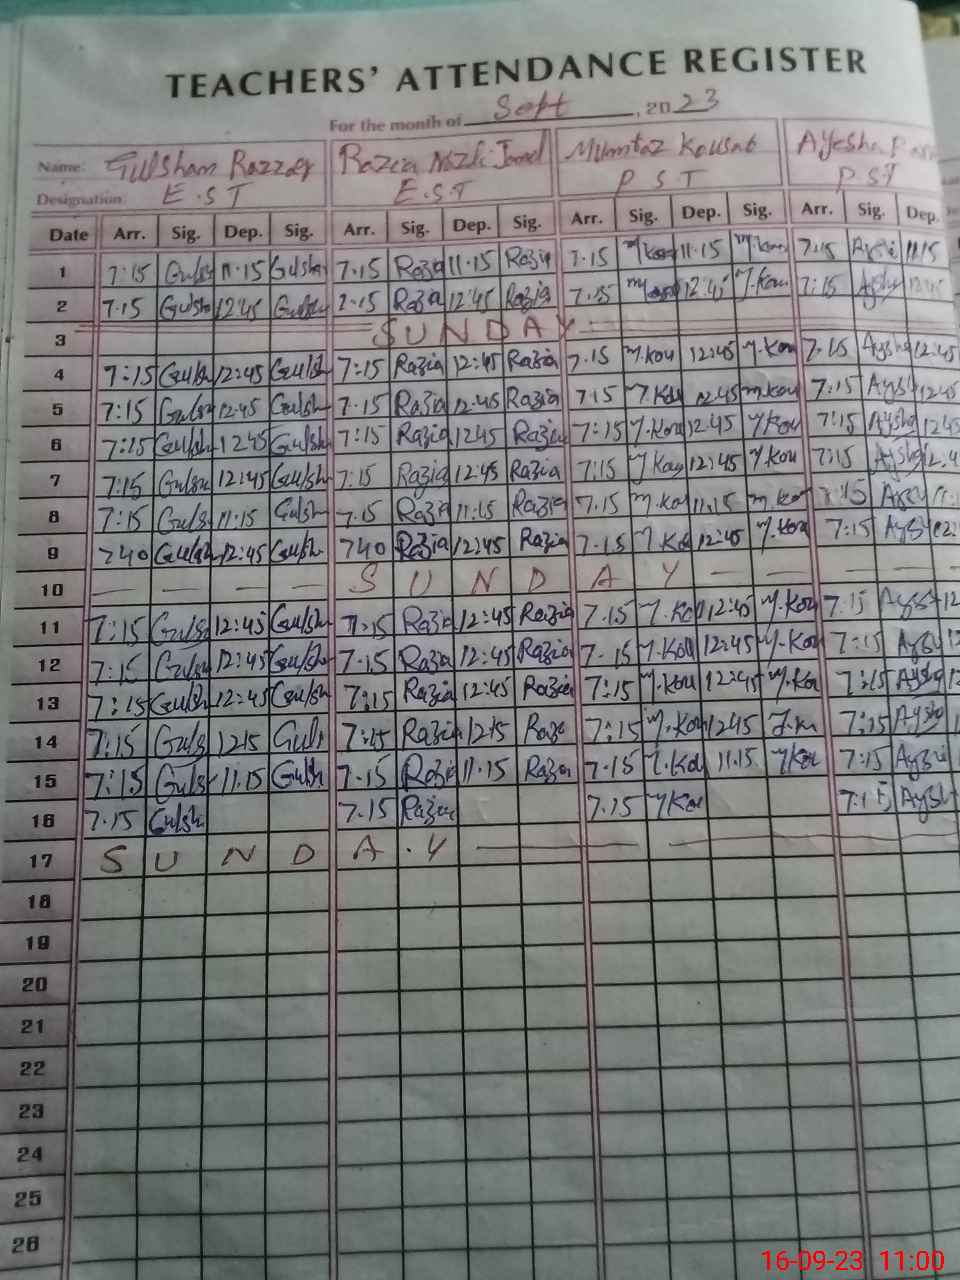 TEACHERS' ATTENDANCE REGISTER
For the month of Sept, 2023
Name: Gulshan Razzaq Razia Nazli Jamel Mumtaz Kousat Ayesha
Designation: E.S.T E.S.T P S T P S T
Date Arr. Sig. Dep. Sig. Arr. Sig. Dep. Sig. Arr. Sig. Dep. Sig. Arr. Sig. Dep.
1 7:15 Gulsh 11.15 Gulsha 7.15 Razia 11.15 Razia 7.15 M Kou 11.15 M.Kou 7:15 Aysh 11.15
2 7.15 Gulsh 12:45 Gulsh 7.15 Razia 12:45 Razia 7:15 M Kou 12:45 M.Kou 7:15 Aysh 12:45
3 SUNDAY
4 7:15 Gulsh 12:45 Gulsh 7:15 Razia 12:45 Razia 7.15 M.Kou 12:45 M.Kou 7.15 Aysha 12:45
5 7:15 Gulsh 12:45 Gulsh 7.15 Razia 12:45 Razia 7.15 M.Kou 12.45 M.Kou 7:15 Aysh 12.45
6 7:15 Gulsh 12 45 Gulsh 7:15 Razia 1245 Razia 7:15 M.Kou 12:45 M.Kou 7:15 Aysha 12 45
7 7:15 Gulsh 12:45 Gulsh 7:15 Razia 12:45 Razia 7:15 M Kou 12:45 M.Kou 7:15 Aysha 12.4
8 7:15 Gulsh 11:15 Gulsh 7.15 Razia 11:15 Razia 7.15 M.Kou 11.15 M.Kou 7:15 Aysh 11:
9 740 Gulsh 12:45 Gulsh 740 Razia 12:45 Razia 7.15 M.Kou 12:45 M.Kou 7:15 Aysh 12:
10 SUNDAY
11 7:15 Gulsh 12:45 Gulsh 7:15 Razia 12:45 Razia 7.15 M.Kou 12:45 M.Kou 7:15 Aysh 12
12 7:15 Gulsh 12:45 Gulsh 7.15 Razia 12:45 Razia 7.15 M.Kou 12:45 M.Kou 7:15 Aysh 12
13 7:15 Gulsh 12:45 Gulsh 7:15 Razia 12:45 Razia 7:15 M.Kou 12:45 M.Kou 7:15 Aysha 12
14 7:15 Gulsh 1215 Gulsh 7:15 Razia 1215 Razia 7:15 M.Kou 1245 7:15 Aysha
15 7:15 Gulsh 11.15 Gulsh 7.15 Razia 11.15 Razia 7.15 M.Kou 11.15 M Kou 7:15 Aysha
16 7.15 Gulsh 7.15 Razia 7.15 M Kou 7:15 Aysh
17 SUNDAY
18
19
20
21
22
23
24
25
26
16-09-23 11:00